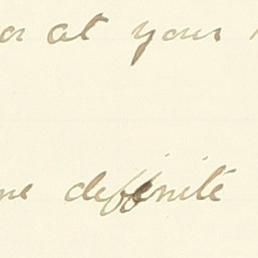 or at your
me deffinite